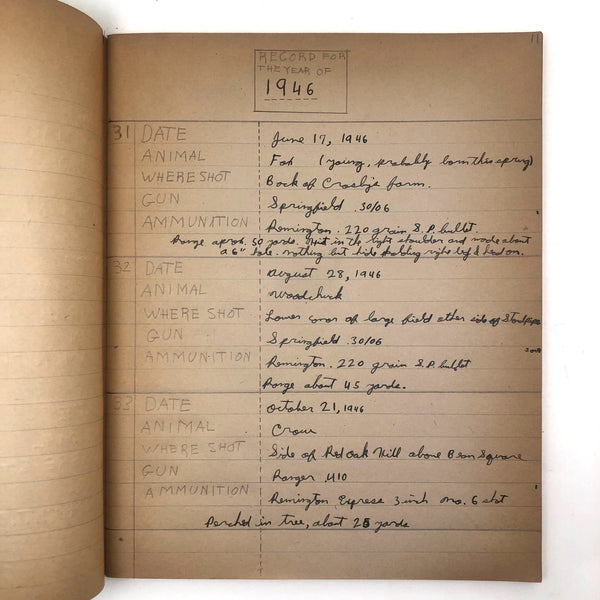 11
RECORD FOR
THE YEAR OF
1946
31 DATE June 17, 1946
ANIMAL Fox (young, probably born this spring)
WHERE SHOT Back of Crosby's farm.
GUN Springfield .30/06
AMMUNITION Remington. 220 grain S.P. bullet.
Range aprox. 50 yards. Hit in the right shoulder and made about
a 6" hole. nothing but hide holding right leg & head on.
32 DATE August 28, 1946
ANIMAL Woodchuck
WHERE SHOT Lower corner of large field other side of Standpipe
GUN Springfield .30/06
AMMUNITION Remington. 220 grain S.P. bullet
Range about 45 yards.
33 DATE October 21, 1946
ANIMAL Crow
WHERE SHOT Side of Red Oak Hill above Bean Square
GUN Ranger .410
AMMUNITION Remington Express 3 inch no. 6 shot
Perched in tree, about 25 yards